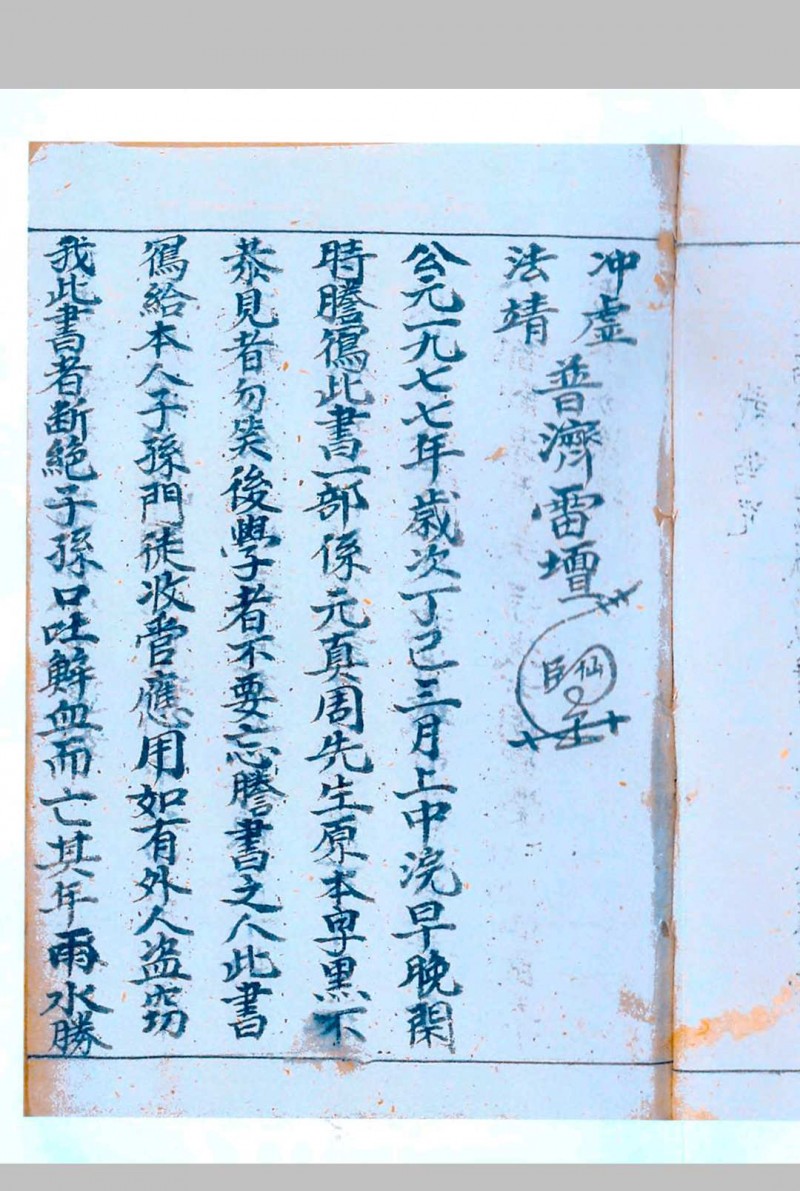 冲虛
法靖
普濟雷壇
仙師
公元一九七七年歲次丁巳三月上中浣早晚閑
時謄寫此書一部係元真周先生原本字黑不
恭見者勿笑後學者不要忘謄書之人此書
寫給本人子孫門徒收管應用如有外人盗窃
我此書者断絕子孫口吐鮮血而亡其年雨水勝